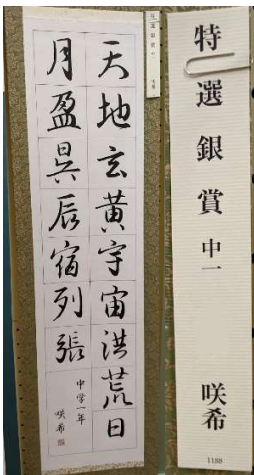 特選銀賞 中一 咲希
1188
天地玄黄宇宙洪荒日
月盈昃辰宿列張
中学一年 咲希